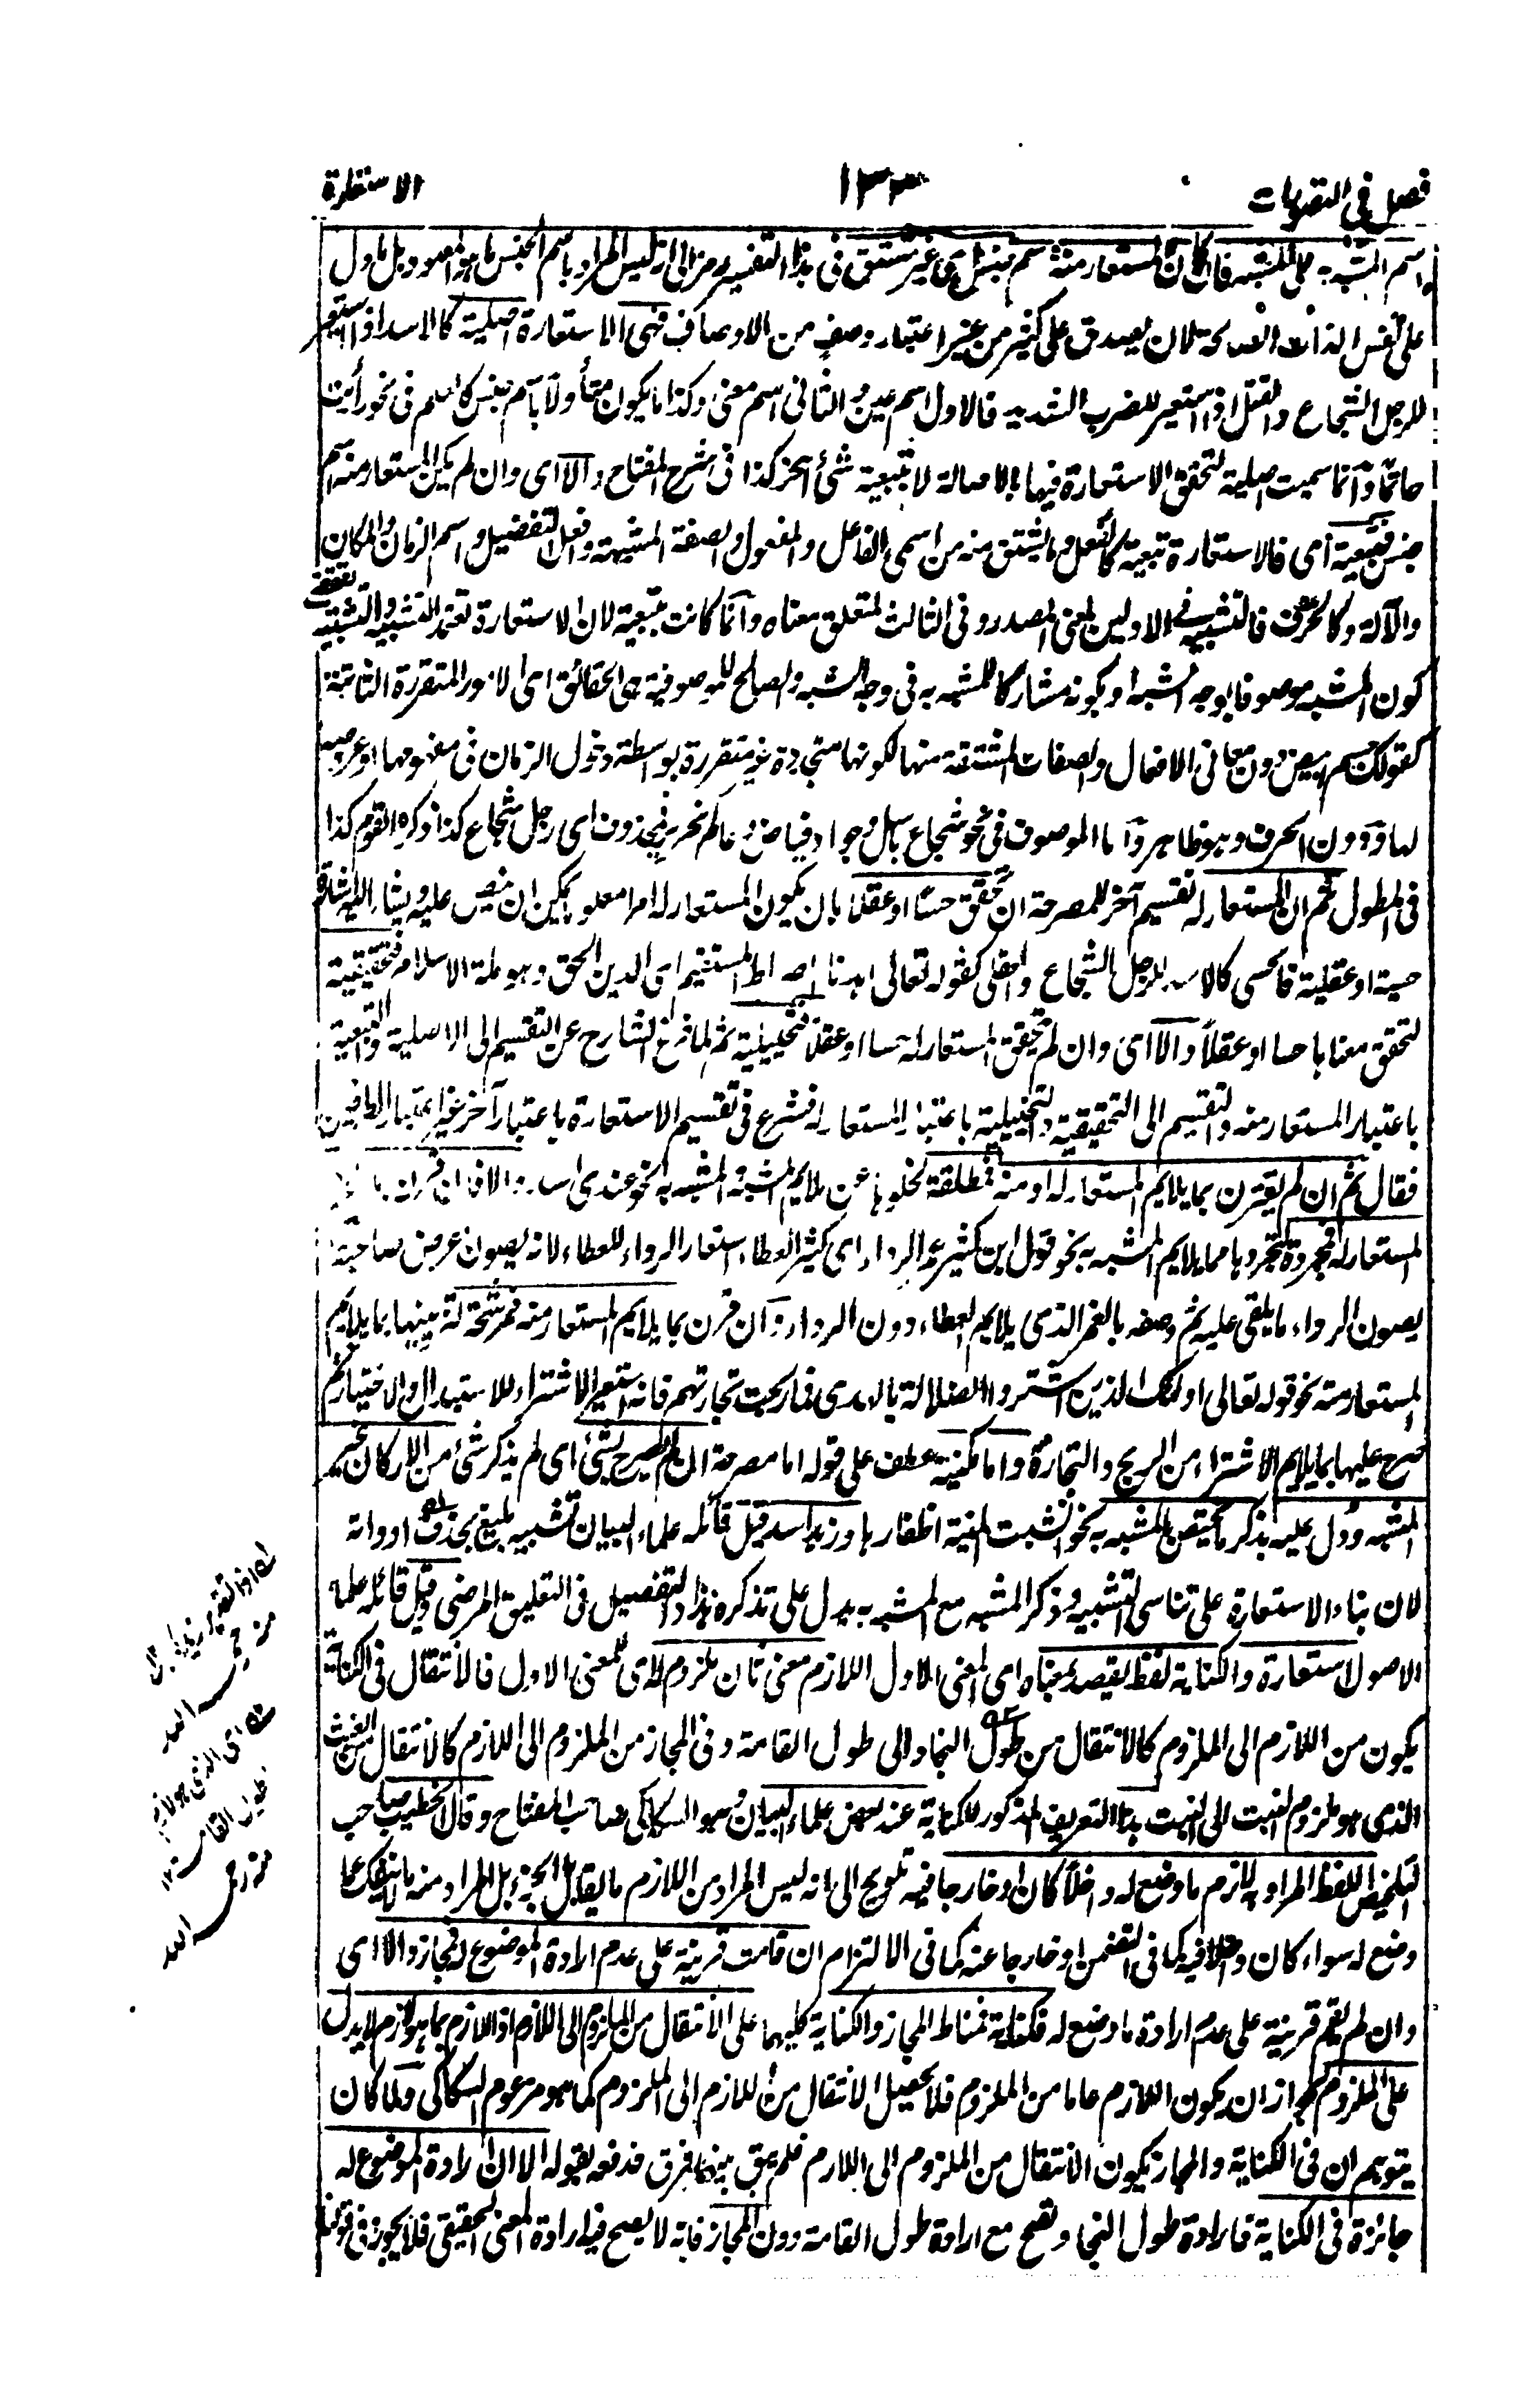 فصل في التصديقات
١٣٣
الاستعارة
اسم المشبه به على المشبه فان كان المستعار منه اسم جنس اى غير مشتق فى هذا التفسير رمز الى انه ليس المراد باسم الجنس ما هو المعهود بل ما دل
على نفس الذات الصالحة لان يصدق على كثير من غير اعتبار وصف من الاوصاف فهى الاستعارة اصلية كالاسد اذا استعير
للرجل الشجاع والقتل اذا استعير للضرب الشديد فالاول اسم عين والثانى اسم معنى وكذا ما يكون متأولا باسم جنس كالعلم فى نحو رأيت
حاتما وانما سميت اصلية لتحقق الاستعارة فيها بالاصالة لا بتبعية شئ آخر كذا فى شرح المفتاح والا اى وان لم يكن المستعار منه اسم
جنس فتبعية اى فالاستعارة تبعية كالفعل وما يشتق منه من اسمى الفاعل والمفعول والصفة المشبهة وافعل التفضيل واسم الزمان والمكان
والآلة وكالحرف فالتشبيه فى الاولين لمعنى المصدر وفى الثالث لمتعلق معناه وانما كانت تبعية لان الاستعارة تعتمد التشبيه والتشبيه يقتضى
كون المشبه موصوفا بوجه الشبه او بكونه مشاركا للمشبه به فى وجه الشبه والصالح للموصوفية هى الحقائق اى الامور المتقررة الثابتة
كقولك جسم ابيض دون معانى الافعال والصفات المشتقة منها لكونها متجددة غير متقررة بواسطة دخول الزمان فى مفهومها او عروضه
لها ودون الحرف وهو ظاهر واما الموصوف فى نحو شجاع باسل وجواد فياض وعالم نحرير فمحذوف اى رجل شجاع كذا ذكره القوم كذا
فى المطول ثم ان المستعار له تقسيم آخر للمصرحة ان تحقق حسا او عقلا بان يكون المستعار له امرا معلوما يمكن ان ينص عليه ويشار اليه اشارة
حسية او عقلية فالحسى كالاسد للرجل الشجاع والعقلى كقوله تعالى اهدنا الصراط المستقيم اى الدين الحق وهو ملة الاسلام فتحقيقية
لتحقق معناها حسا او عقلا والا اى وان لم تحقق المستعار له حسا او عقلا فتخييلية ثم لما فرغ الشارح عن التقسيم الى الاصلية والتبعية
باعتبار المستعار منه والتقسيم الى التحقيقية والتخييلية باعتبار المستعار له فشرع فى تقسيم الاستعارة باعتبار آخر غير اعتبار الطرفين
فقال ثم ان لم يقترن بما يلايم المستعار له او منه فمطلقة لخلوها عن ملايم المشبه والمشبه به نحو عندى اسد والا فان قرن بما يلايم
المستعار له فمجردة لتجردها مما يلايم المشبه به نحو قول ابن كثير غمر الرداء اى كثير العطاء استعار الرداء للعطاء لانه يصون عرض صاحبه كما
يصون الرداء ما يلقى عليه ثم وصفه بالغمر الذى يلايم العطاء دون الرداء وان قرن بما يلايم المستعار منه فمرشحة لتزيينها بما يلايم
المستعار منه نحو قوله تعالى اولئك الذين اشتروا الضلالة بالهدى فما ربحت تجارتهم فانه استعير الاشتراء للاستبدال والاختيار ثم
فرع عليها بما يلايم الاشتراء من الربح والتجارة واما مكنية عطف على قوله اما مصرحة ان لم يصرح بشئ اى لم يذكر شئ من الاركان غير
المشبه ودل عليه بذكر ما يختص بالمشبه به نحو انشبت المنية اظفارها وزيد اسد قيل قائله علماء البيان تشبيه بليغ بحذف اداته
لان بناء الاستعارة على تناسى التشبيه وذكر المشبه مع المشبه به يدل على تذكره هذا والتفصيل فى التعليق المرضى وقيل قائله علماء
الاصول استعارة والكناية لفظ يقصد بمعناه اى المعنى الاول اللازم معنى ثان ملزوم له اى للمعنى الاول فالانتقال فى الكناية
يكون من اللازم الى الملزوم كالانتقال من طول النجاد الى طول القامة وفى المجاز من الملزوم الى اللازم كالانتقال من الغيث
الذى هو ملزوم النبت الى النبت هذا التعريف المذكور للكناية عند بعض علماء البيان وهو السكاكى صاحب المفتاح وقال الخطيب صاحب
التلخيص اللفظ المراد به لازم ما وضع له داخلا كان او خارجا فيه تلويح الى انه ليس المراد من اللازم ما يقابل الجزء بل المراد منه ما لا ينفك عما
وضع له سواء كان داخلا فيه كما فى التضمن او خارجا عنه كما فى الالتزام ان قامت قرينة على عدم ارادة الموضوع له فمجاز والا اى
وان لم يقم قرينة على عدم ارادة ما وضع له فكناية فمناط المجاز والكناية كليهما على الانتقال من الملزوم الى اللازم اذ اللازم بما هو لازم لا يدل
على الملزوم لجواز ان يكون اللازم عاما من الملزوم فلا يحصل الانتقال من اللازم الى الملزوم كما هو مزعوم السكاكى ولما كان
يتوهم ان فى الكناية والمجاز يكون الانتقال من الملزوم الى اللازم فلم يبق بينهما فرق فدفعه بقوله الا ان ارادة الموضوع له
جائزة فى الكناية فارادة طول النجاد تصح مع ارادة طول القامة دون المجاز فانه لا يصح فيه ارادة المعنى الحقيقى فلا يجوز فى قولنا
منه رحمه الله
اى الذى هو لازم
طول القامة ١٢
منه رحمه الله